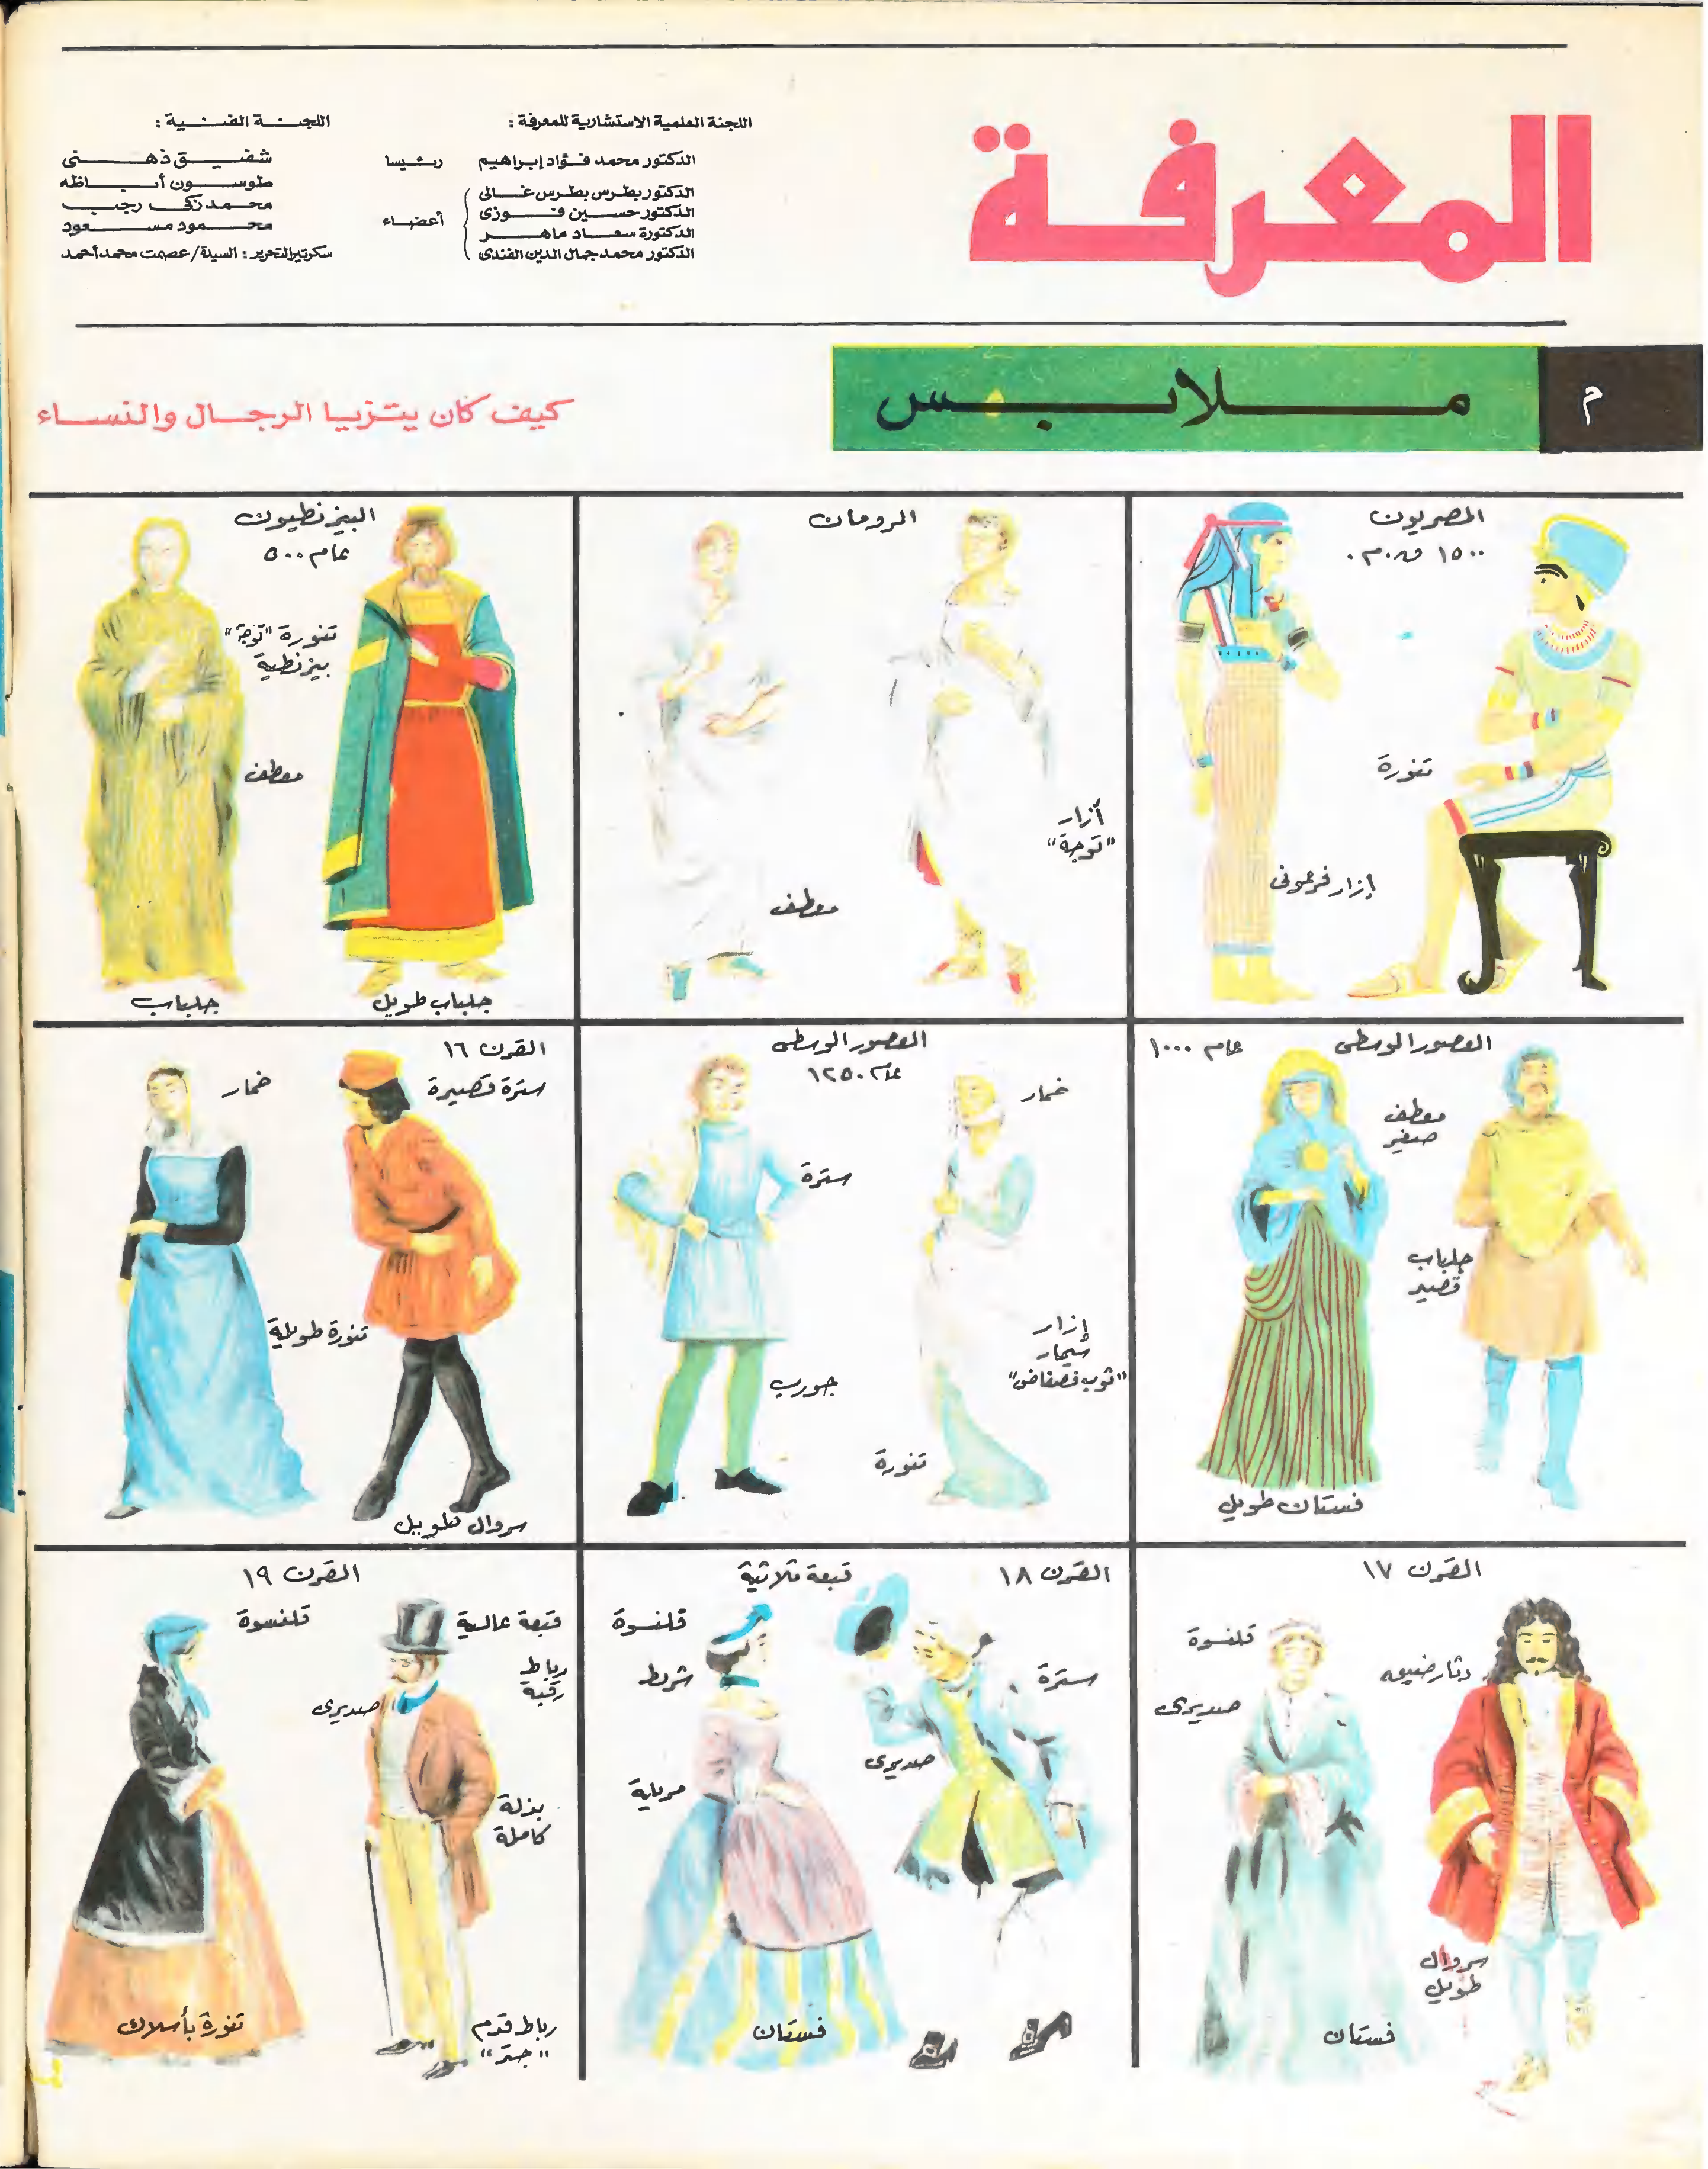 المعرفة
اللجنة العلمية الاستشارية للمعرفة :
الدكتور محمد فؤاد إبراهيم رئيسا
الدكتور بطرس بطرس غالى
الدكتور حسين فوزى
الدكتورة سعاد ماهر
الدكتور محمد جمال الدين الفندى
أعضاء
اللجنة الفنية :
شفيق ذهنى
طوسون أباظه
محمد زكى رجب
محمود مسعود
سكرتير التحرير : السيدة / عصمت محمد أحمد
م
ملابس
كيف كان يتزيا الرجال والنساء
المصريون
١٥٠٠ ق.م.
تنورة
إزار فرعونى
الرومان
أزار
"توجة"
معطف
البيزنطيون
عام ٥٠٠
تنورة "توجة"
بيزنطية
معطف
جلباب طويل
جلباب
العصور الوسطى عام ١٠٠٠
معطف
صغير
جلباب
قصير
فستان طويل
العصور الوسطى
عام ١٢٥٠
خمار
سترة
إزار
سيمار
"ثوب فضفاض"
جورب
تنورة
القرن ١٦
سترة قصيرة
خمار
تنورة طويلة
سروال طويل
القرن ١٧
قلنسوة
دثار ضيعه
صديرى
سروال
طويل
فستان
القرن ١٨
قبعة ثلاثية
قلنسوة
سترة
شريط
صديرى
مريلة
فستان
القرن ١٩
قبعة عالية
قلنسوة
رباط
رقبة
صديرى
بذلة
كاملة
تنورة بأسلاك
رباط قدم
"جتر"